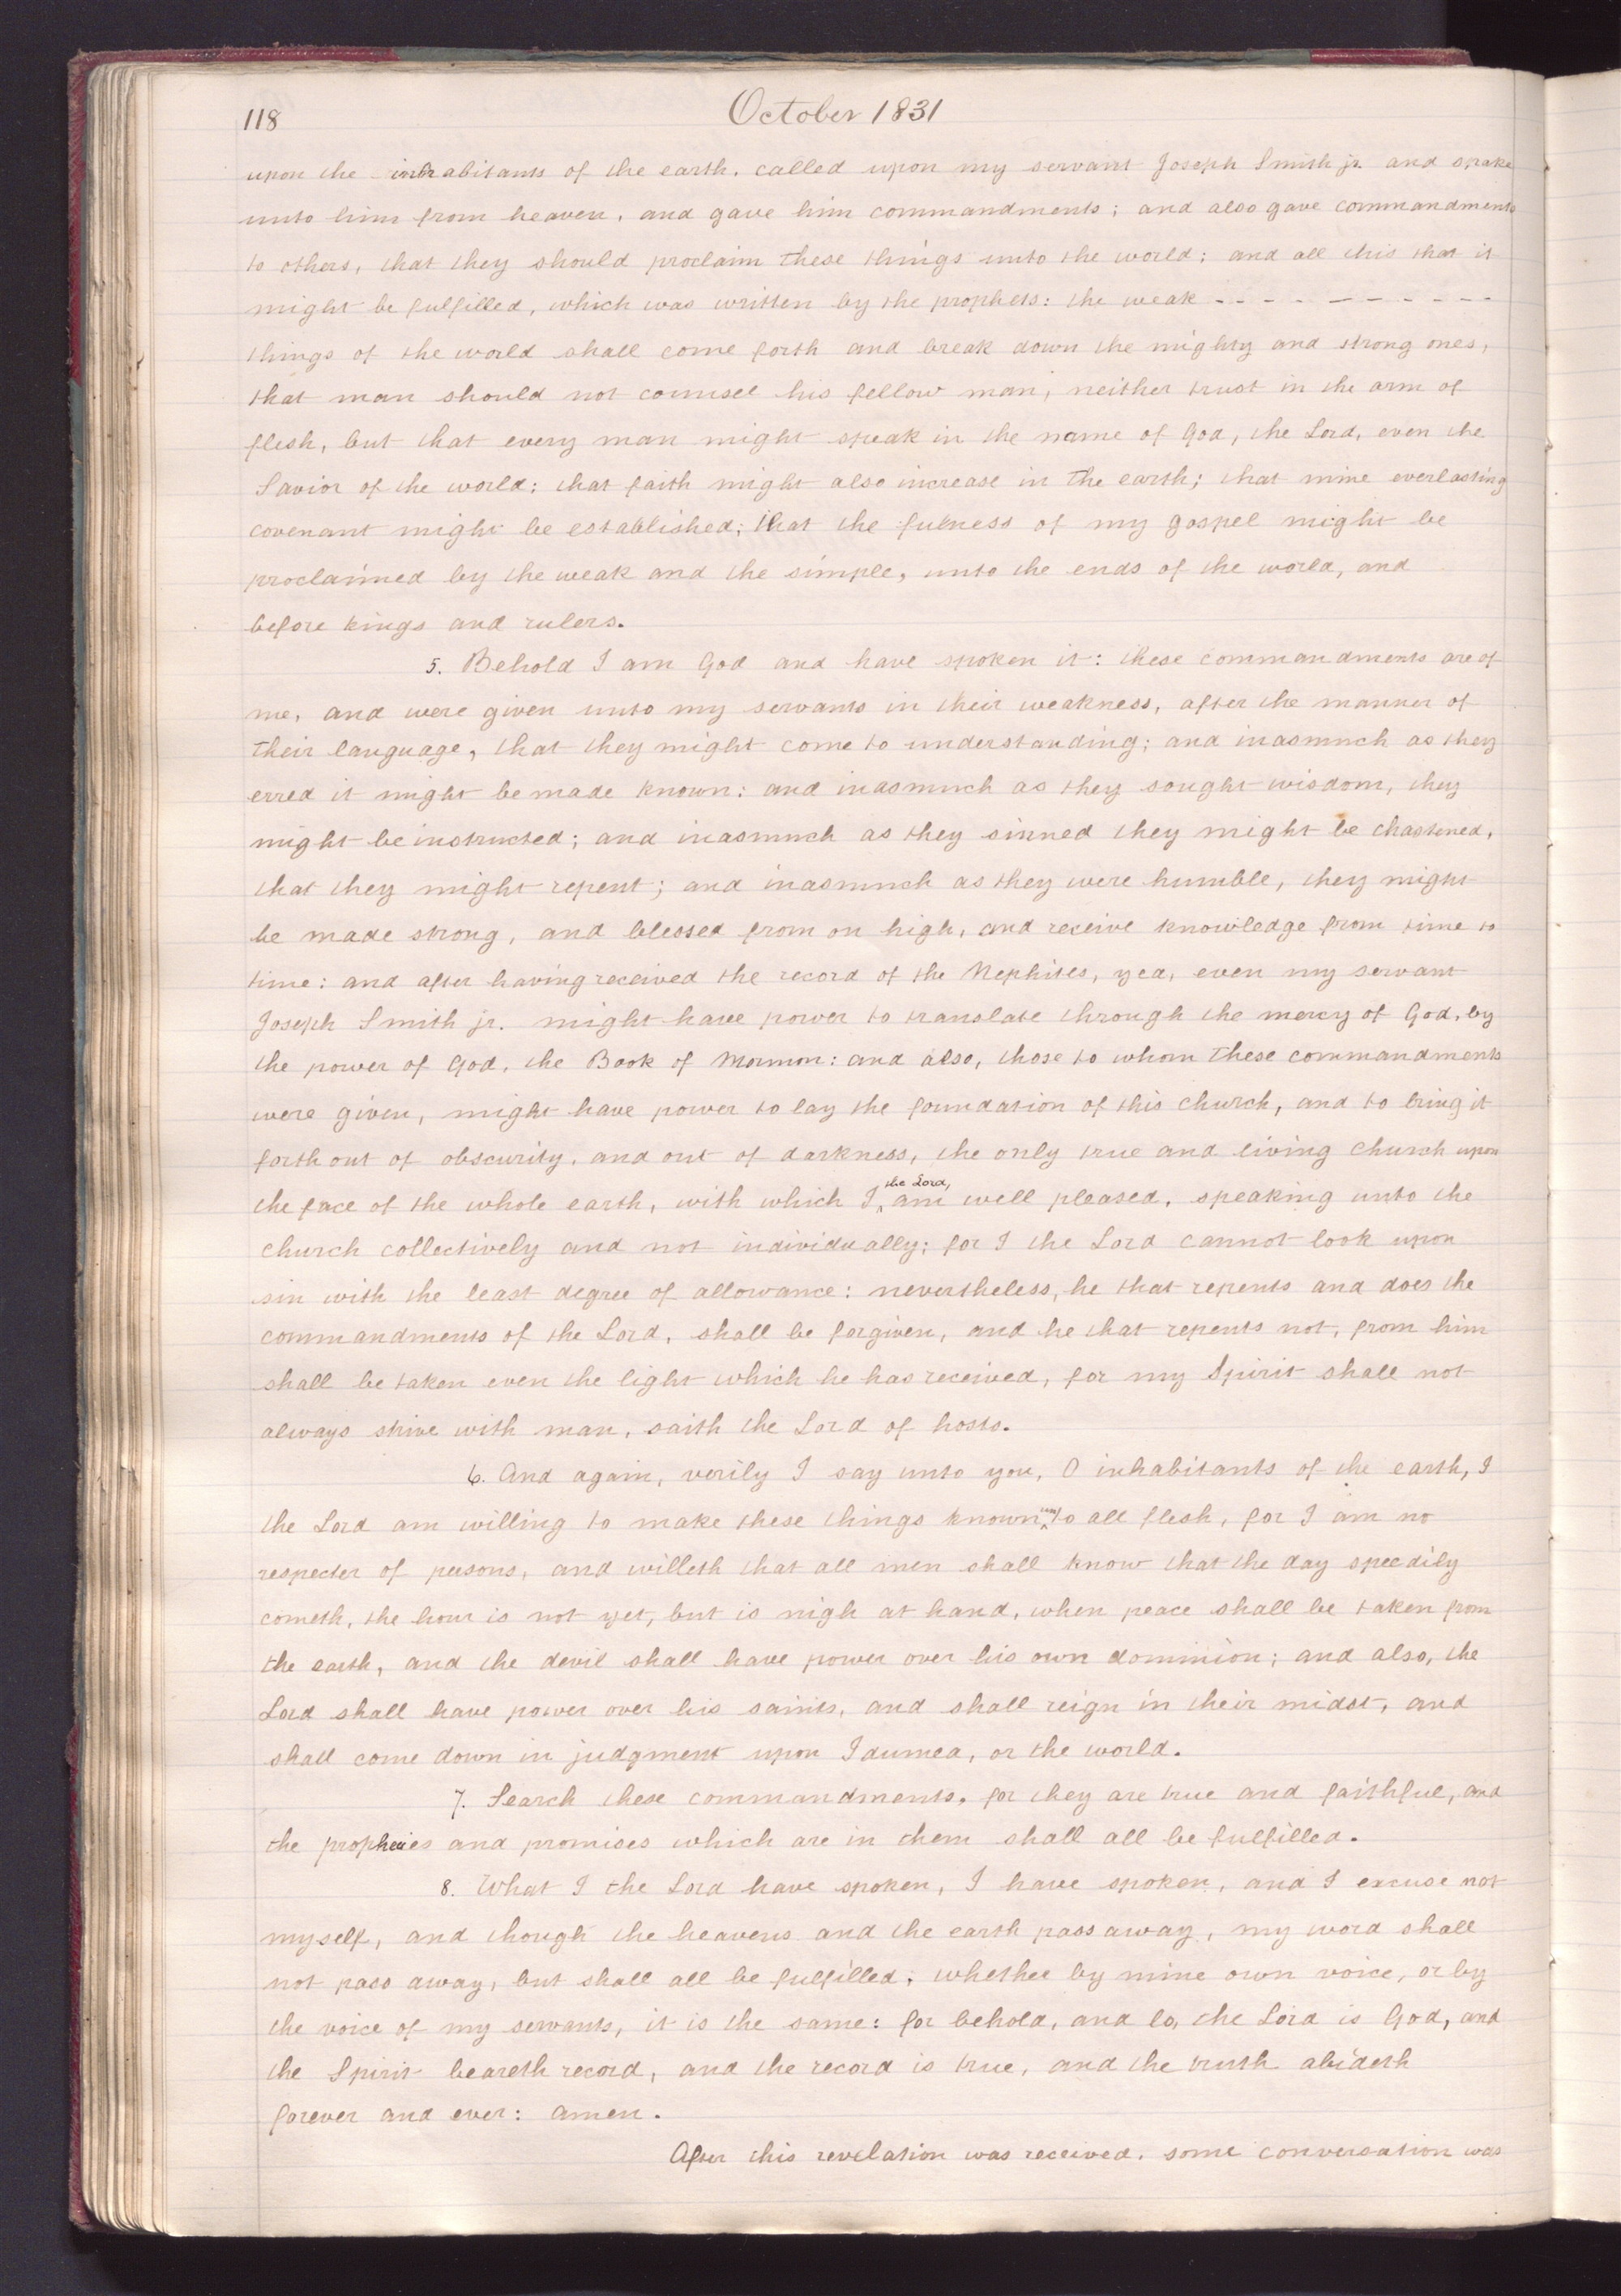 118
October 1831
upon the inhabitants of the earth, called upon my servant Joseph Smith jr. and spake
unto him from heaven, and gave him commandments; and also gave commandments
to others, that they should proclaim these things unto the world; and all this that it
might be fulfilled, which was written by the prophets: the weak - - - - - - - - - - -
things of the world shall come forth and break down the mighty and strong ones,
that man should not counsel his fellow man, neither trust in the arm of
flesh, but that every man might speak in the name of God, the Lord, even the
Savior of the world: that faith might also increase in the earth; that mine everlasting
covenant might be established; that the fulness of my gospel might be
proclaimed by the weak and the simple, unto the ends of the world, and
before kings and rulers.
5. Behold I am God and have spoken it: these commandments are of
me, and were given unto my servants in their weakness, after the manner of
their language, that they might come to understanding; and inasmuch as they
erred it might be made known: and inasmuch as they sought wisdom, they
might be instructed; and inasmuch as they sinned they might be chastened,
that they might repent; and inasmuch as they were humble, they might
be made strong, and blessed from on high, and receive knowledge from time to
time: and after having received the record of the Nephites, yea, even my servant
Joseph Smith jr. might have power to translate through the mercy of God, by
the power of God, the Book of Mormon: and also, those to whom these commandments
were given, might have power to lay the foundation of this church, and to bring it
forth out of obscurity, and out of darkness, the only true and living church upon
the face of the whole earth, with which I, the Lord, am well pleased, speaking unto the
church collectively and not individually; for I the Lord cannot look upon
sin with the least degree of allowance: nevertheless, he that repents and does the
commandments of the Lord, shall be forgiven, and he that repents not, from him
shall be taken even the light which he has received, for my Spirit shall not
always strive with man, saith the Lord of hosts.
6. And again, verily I say unto you, O inhabitants of the earth, I
the Lord am willing to make these things known unto all flesh, for I am no
respecter of persons, and willeth that all men shall know that the day speedily
cometh, the hour is not yet, but is nigh at hand, when peace shall be taken from
the earth, and the devil shall have power over his own dominion; and also, the
Lord shall have power over his saints, and shall reign in their midst, and
shall come down in judgment upon Idumea, or the world.
7. Search these commandments, for they are true and faithful, and
the prophecies and promises which are in them shall all be fulfilled.
8. What I the Lord have spoken, I have spoken, and I excuse not
myself, and though the heavens and the earth pass away, my word shall
not pass away, but shall all be fulfilled; whether by mine own voice, or by
the voice of my servants, it is the same: for behold, and lo, the Lord is God, and
the Spirit beareth record, and the record is true, and the truth abideth
forever and ever: amen.
After this revelation was received, some conversation was